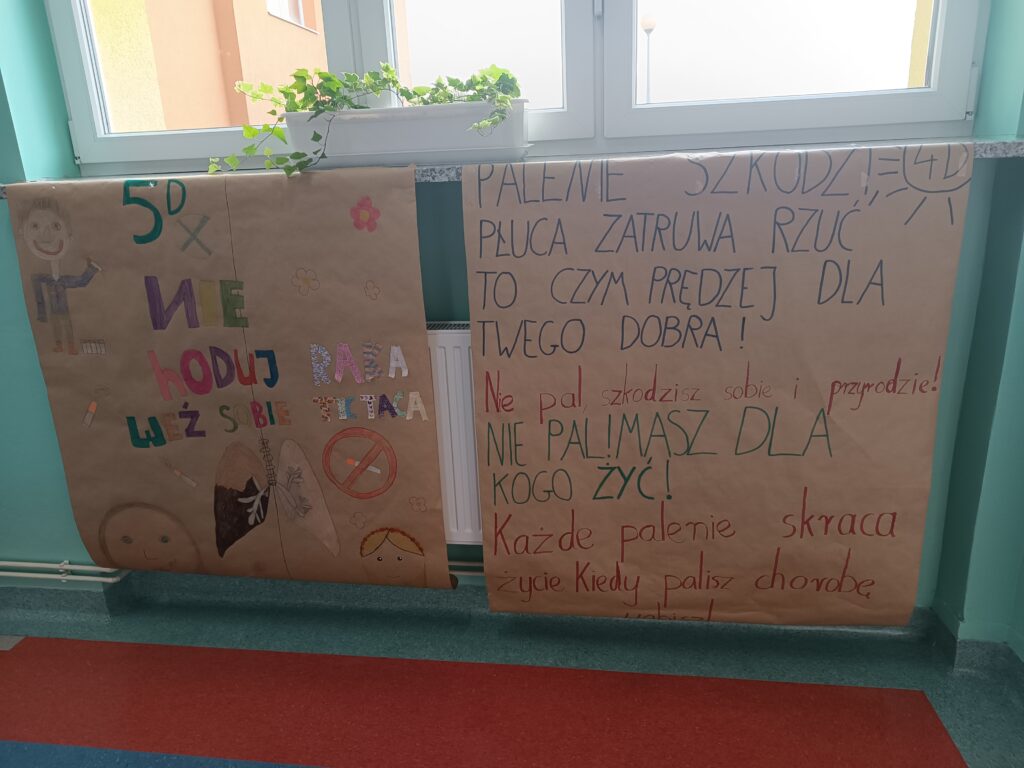 5D
NIE
hODUJ RAKA
WEŹ SOBIE TIC TACA
PALENIE SZKODZI! 4D
PŁUCA ZATRUWA RZUĆ
TO CZYM PRĘDZEJ DLA
TWEGO DOBRA!
Nie pal, szkodzisz sobie i przyrodzie!
NIE PAL! MASZ DLA
KOGO ŻYĆ!
Każde palenie skraca
życie Kiedy palisz chorobę